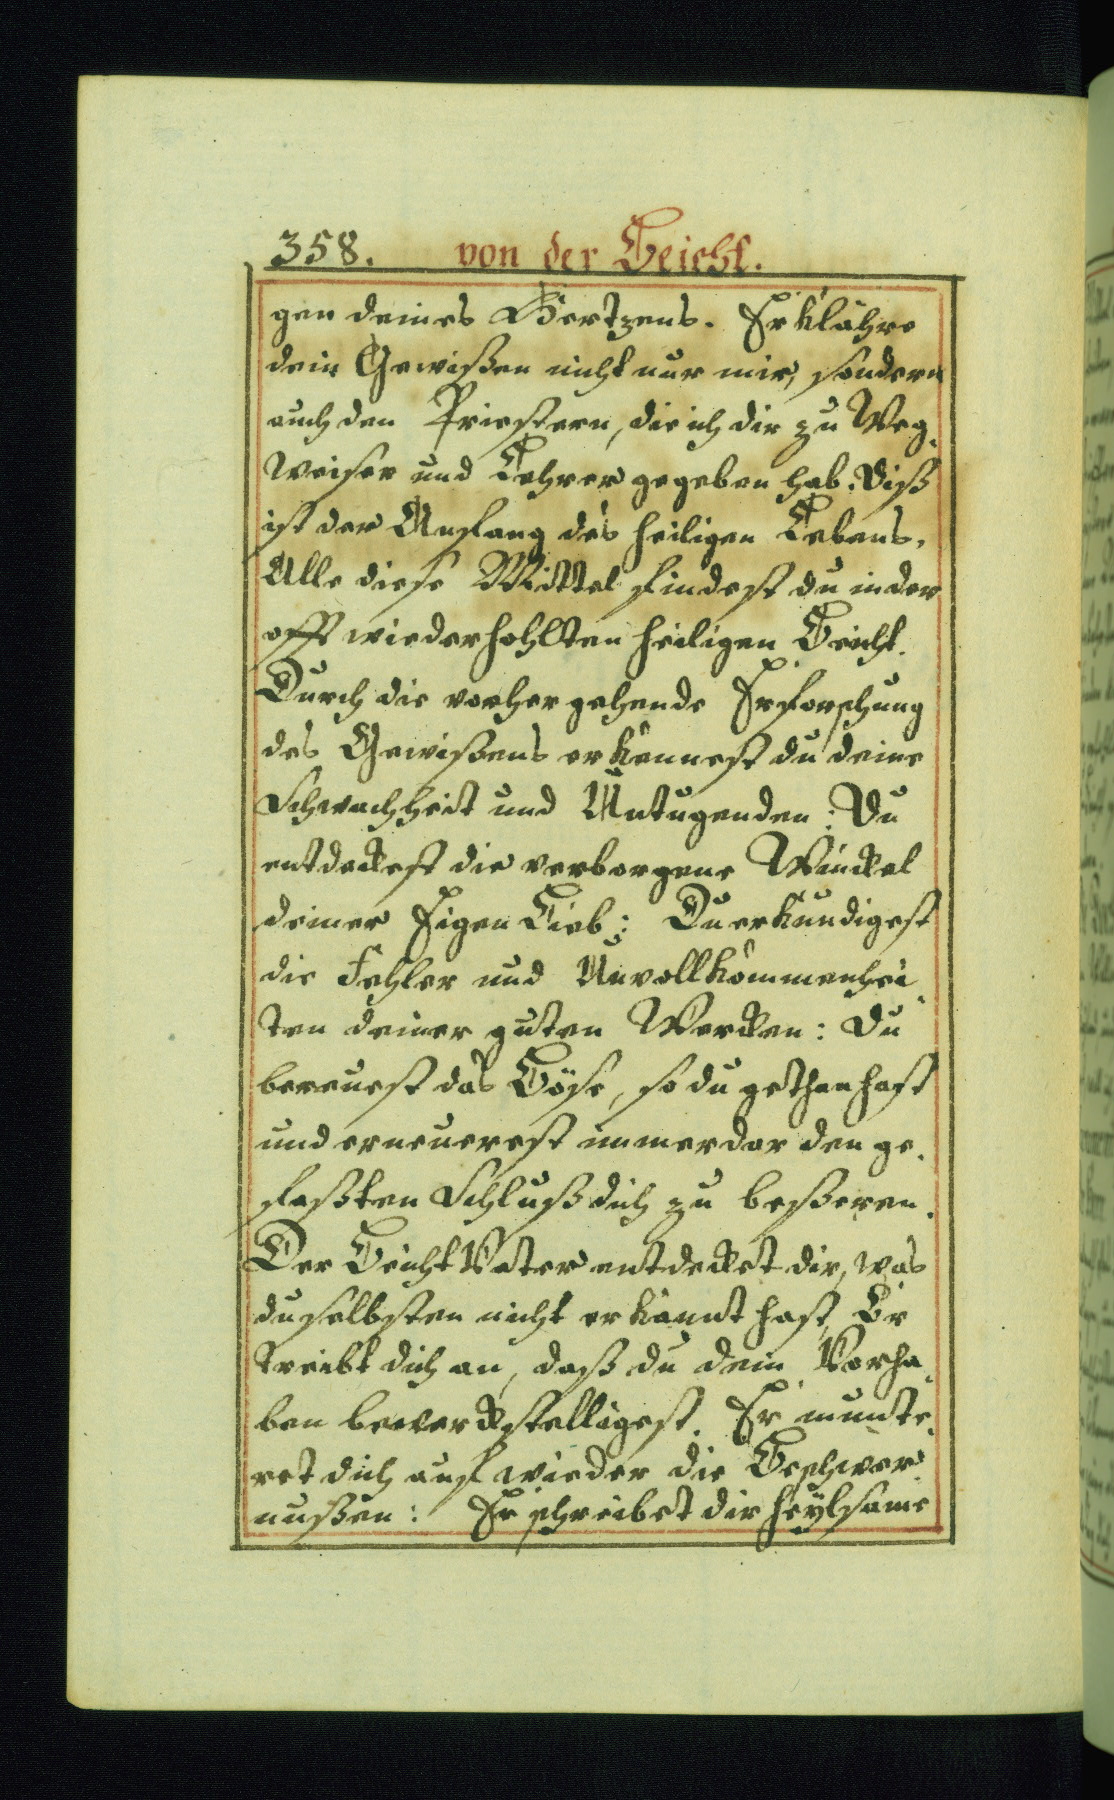 358. von der Beicht.
gen deines Hertzens. Erklähre
dein Gewißen nicht nur mir, sondern
auch den Priestern, die ich dir zu Weg-
Weiser und Lehrer gegeben hab. Diß
ist der Anfang des heiligen Lebens.
Alle diese Mittel findest du in der
offt wiederhohlten heiligen Beicht.
Durch die vorhergehende Erforschung
des Gewißens erkennest du deine
Schwachheit und Untugenden: Du
entdeckest die verborgene Winckel
deiner Eigen Lieb: Du erkundigest
die Fehler und Unvollkommenhei-
ten deiner guten Wercken: Du
bereuest das Böse, so du gethan hast
und erneuerest immerdar den ge-
faßten Schluß dich zu beßeren.
Der Beicht Vater entdecket dir, was
du selbsten nicht erkannt hast, Er
treibt dich an, daß du dein Vorha-
ben bewerckstelligest. Er munte-
ret dich auf wieder die Beschwer-
nußen: Er schreibet dir heylsame